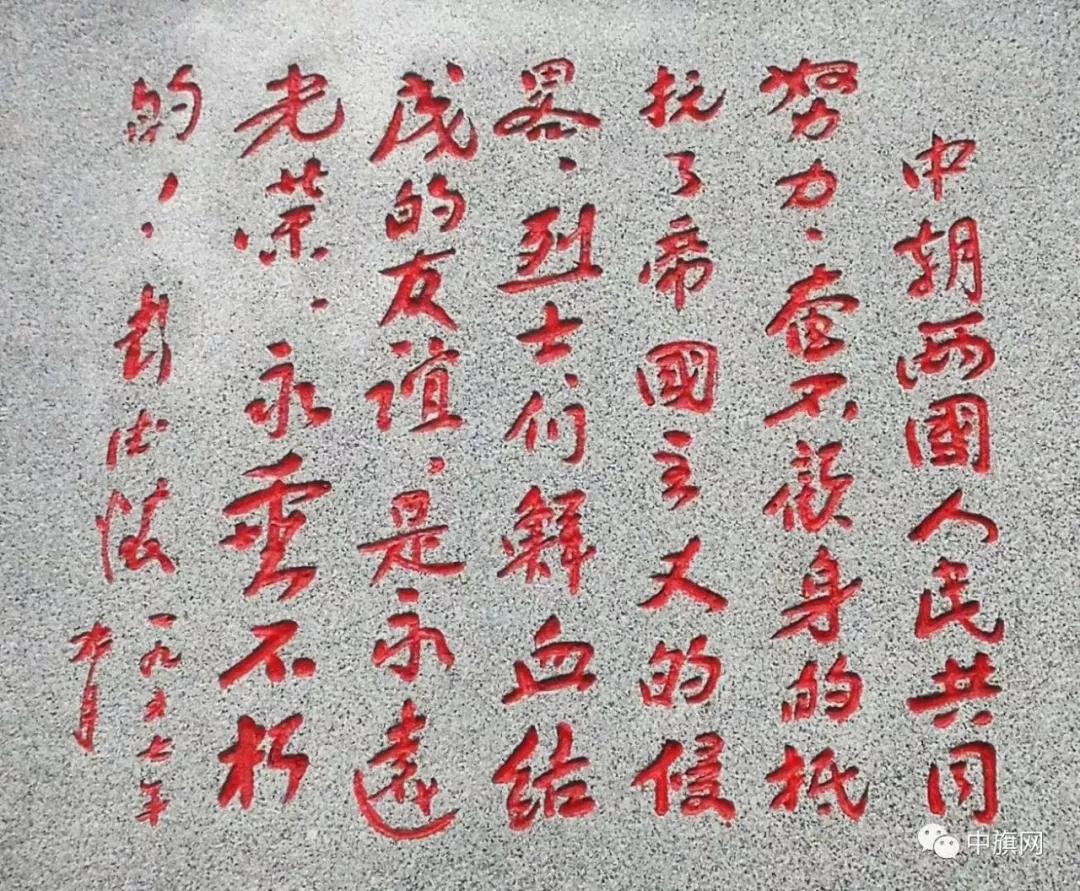 中朝两國人民共同
努力，奮不顧身的抵
抗了帝國主义的侵
畧，烈士们鮮血结
成的友谊，是永遠
光荣，永垂不朽
的！彭德懷
一九五七年
中旗网